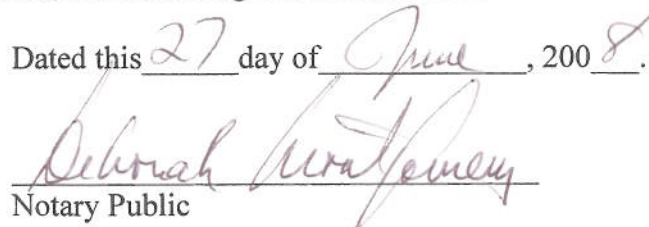 Dated this 27 day of June, 2008.
Deborah Montgomery
Notary Public